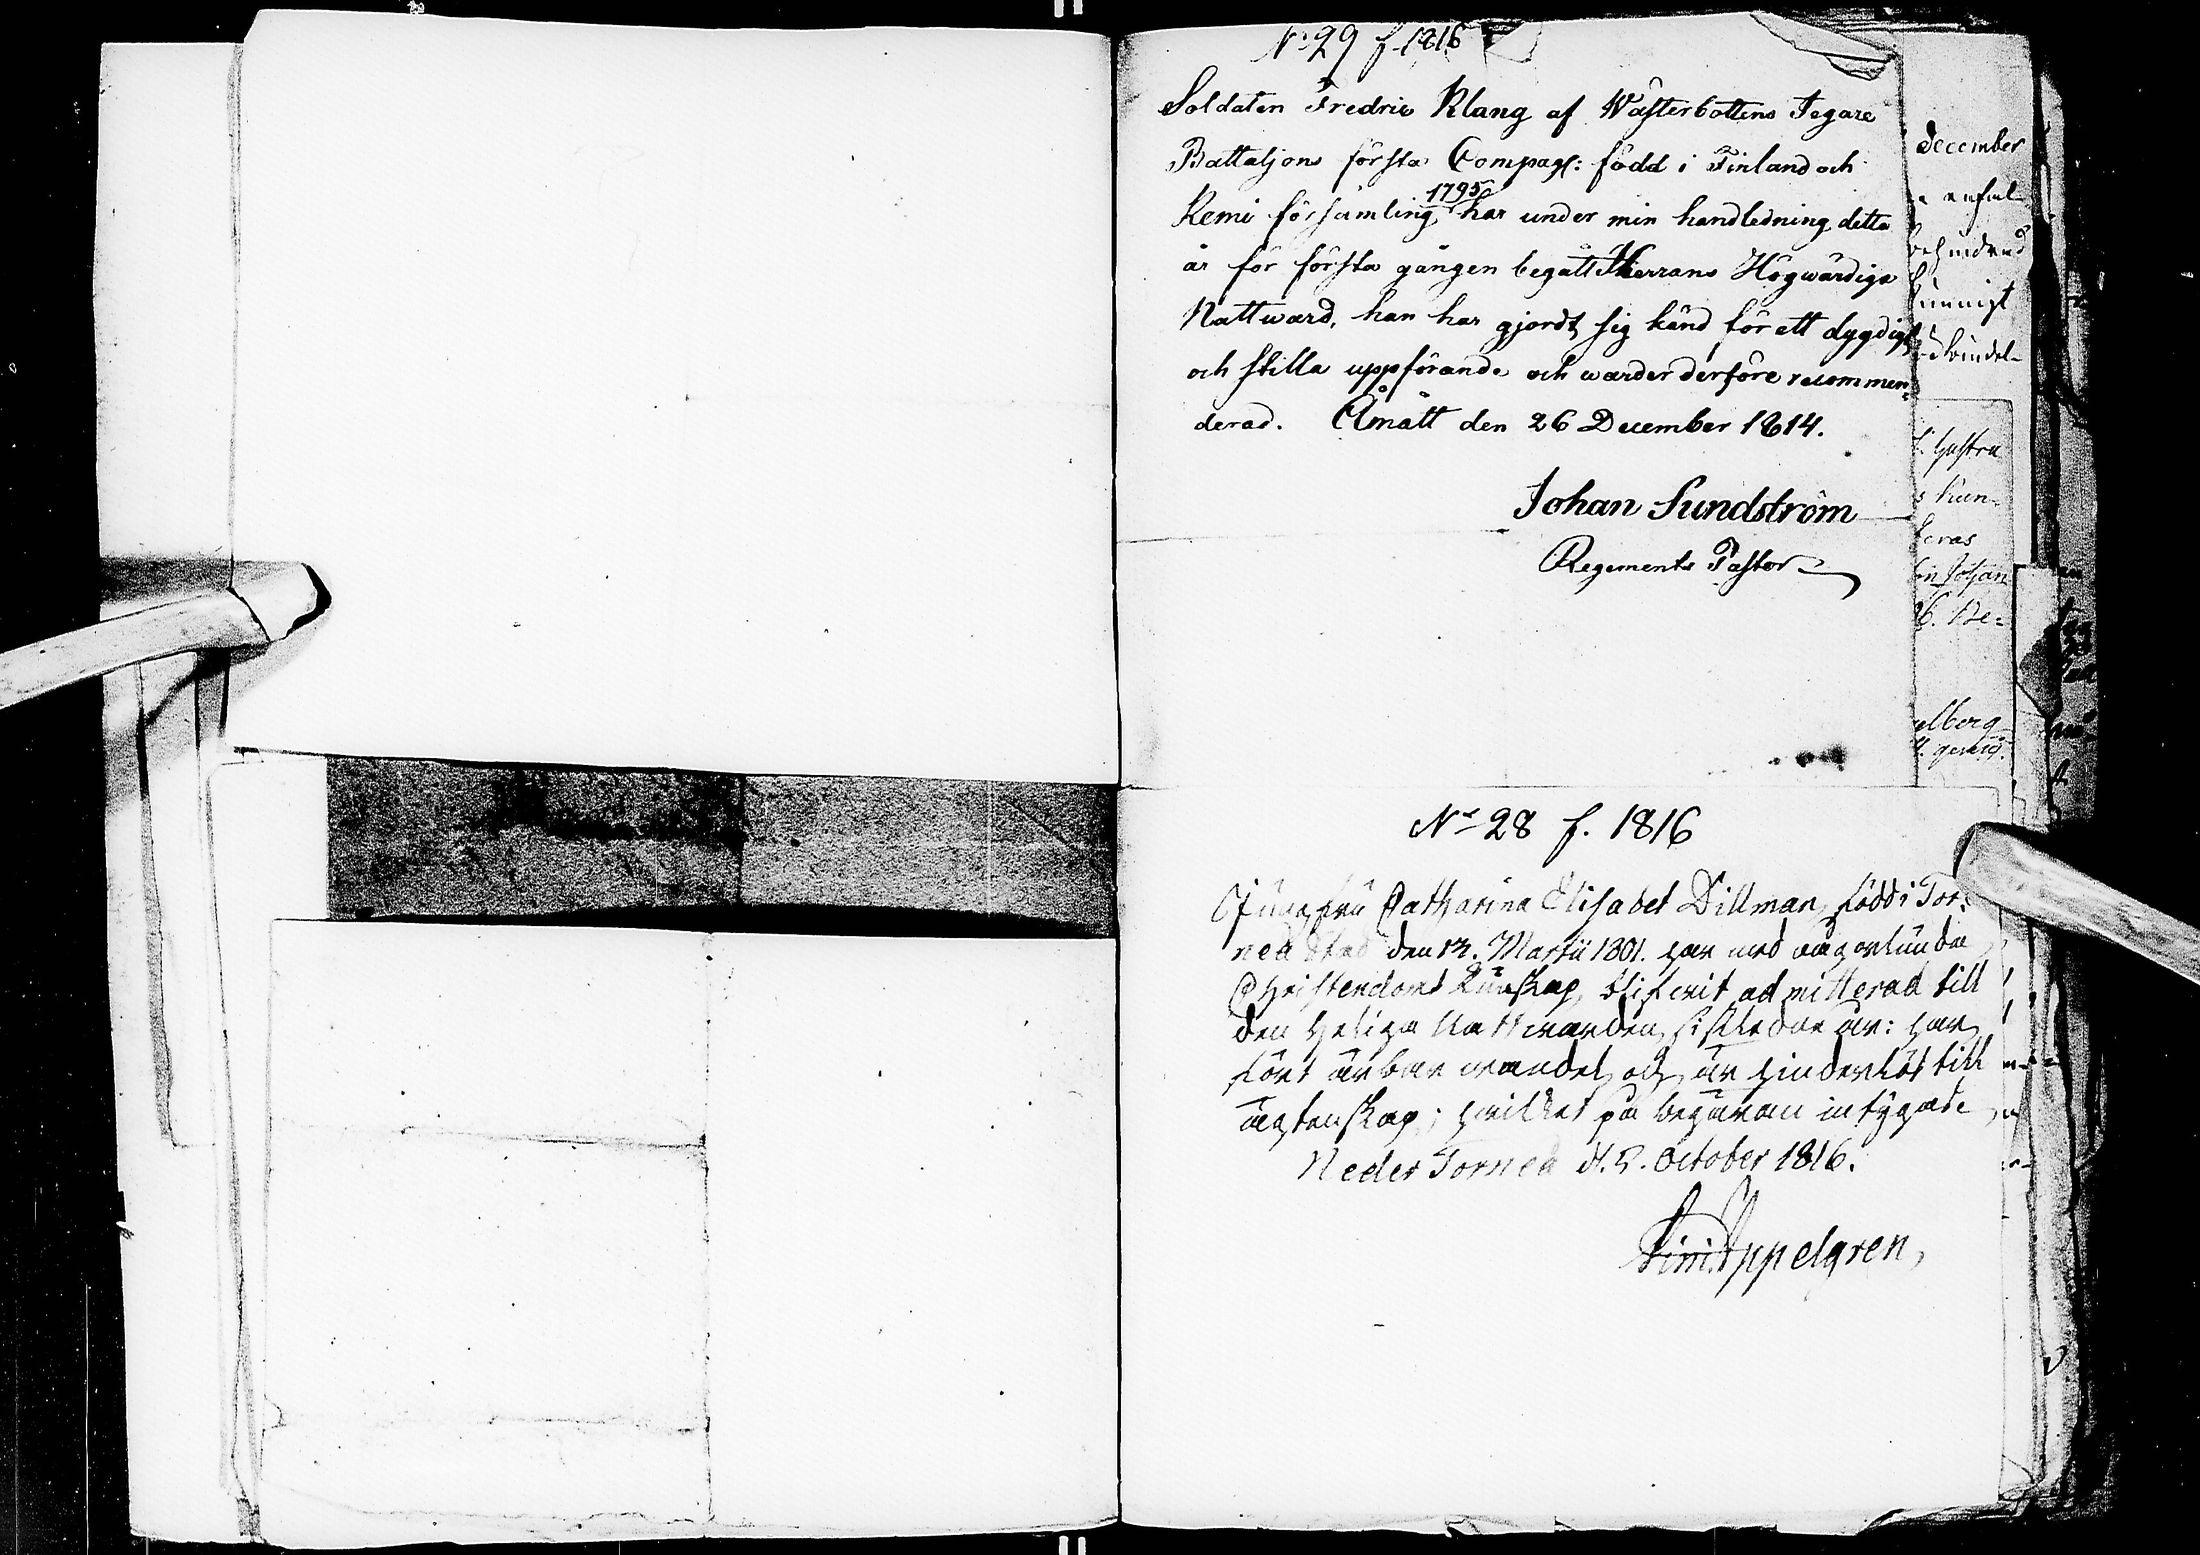 No: 29 f. 1816
Soldaten Fredric Klang af Wästerbottens Jegare
Battaljons första Compag: född i Finland och
Kemi församling, 1795 har under min handledning detta
år för första gången begått Herrans Högwärdiga
Nattward, han har gjordt sig känd för ett dygdigt
och stilla uppförande och warder derföre recommen-
derad. Åmått den 26 December 1814.
Johan Sundström
Regements Pastor
December
Johan
elberg
No 28 f. 1816
Jungfru Catharina Elisabet Dillman, född i Tor-
neå Stad den 13. Martii 1801. har med någorlunda
Christendoms Kunskap, blifwit admitterad till
den heliga Nattwarden, sistledne år: har
fört ärbar wandel, och är hinderlös till
ägtenskap; hwilket på begäran intygade
Neder Torneå d. 5. October 1816.
Appelgren,